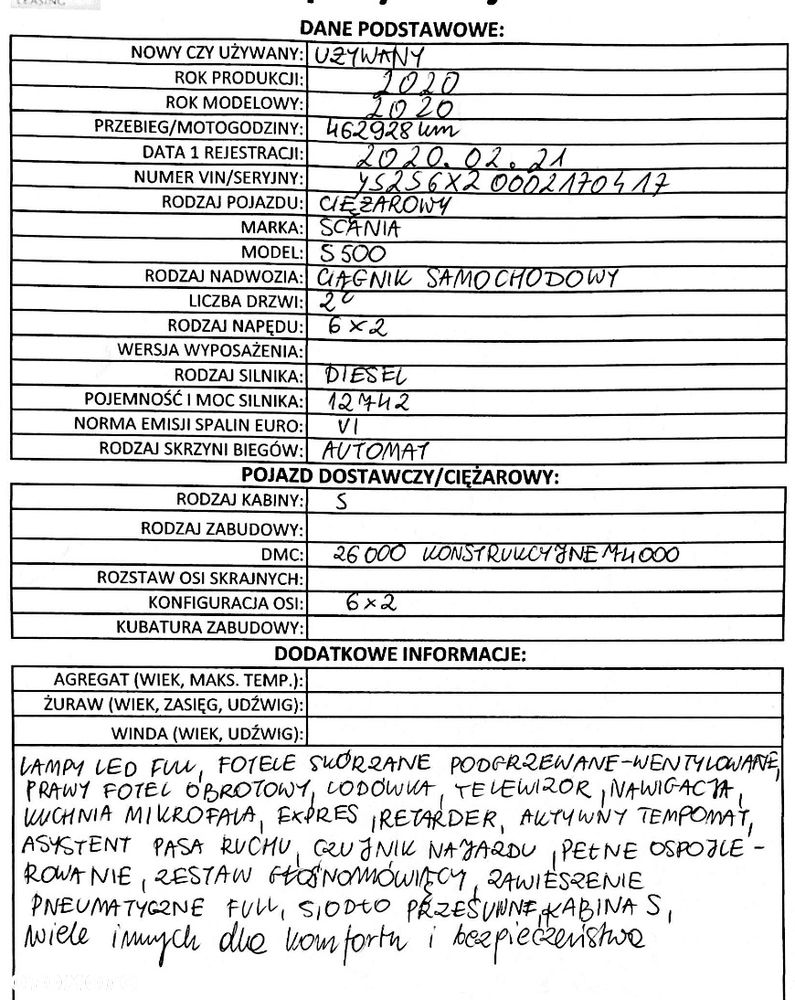 LEASING
DANE PODSTAWOWE:
NOWY CZY UŻYWANY: UŻYWANY
ROK PRODUKCJI: 2020
ROK MODELOWY: 2020
PRZEBIEG/MOTOGODZINY: 462928 km
DATA 1 REJESTRACJI: 2020.02.21
NUMER VIN/SERYJNY: YS2S6X20002170417
RODZAJ POJAZDU: CIĘŻAROWY
MARKA: SCANIA
MODEL: S 500
RODZAJ NADWOZIA: CIĄGNIK SAMOCHODOWY
LICZBA DRZWI: 2
RODZAJ NAPĘDU: 6x2
WERSJA WYPOSAŻENIA:
RODZAJ SILNIKA: DIESEL
POJEMNOŚĆ I MOC SILNIKA: 12742
NORMA EMISJI SPALIN EURO: VI
RODZAJ SKRZYNI BIEGÓW: AUTOMAT
POJAZD DOSTAWCZY/CIĘŻAROWY:
RODZAJ KABINY: S
RODZAJ ZABUDOWY:
DMC: 26000 KONSTRUKCYJNE 74000
ROZSTAW OSI SKRAJNYCH:
KONFIGURACJA OSI: 6x2
KUBATURA ZABUDOWY:
DODATKOWE INFORMACJE:
AGREGAT (WIEK, MAKS. TEMP.):
ŻURAW (WIEK, ZASIĘG, UDŹWIG):
WINDA (WIEK, UDŹWIG):
LAMPY LED FULL, FOTELE SKÓRZANE PODGRZEWANE-WENTYLOWANE,
PRAWY FOTEL OBROTOWY, LODÓWKA, TELEWIZOR, NAWIGACJA,
KUCHNIA MIKROFALA, EXPRES, RETARDER, AKTYWNY TEMPOMAT,
ASYSTENT PASA RUCHU, CZUJNIK NAJAZDU, PEŁNE OSPOJLE-
ROWANIE, ZESTAW GŁOŚNOMÓWIĘCY, ZAWIESZENIE
PNEUMATYCZNE FULL, SIODŁO PRZESUWNE, KABINA S,
wiele innych dla komfortu i bezpieczeństwa